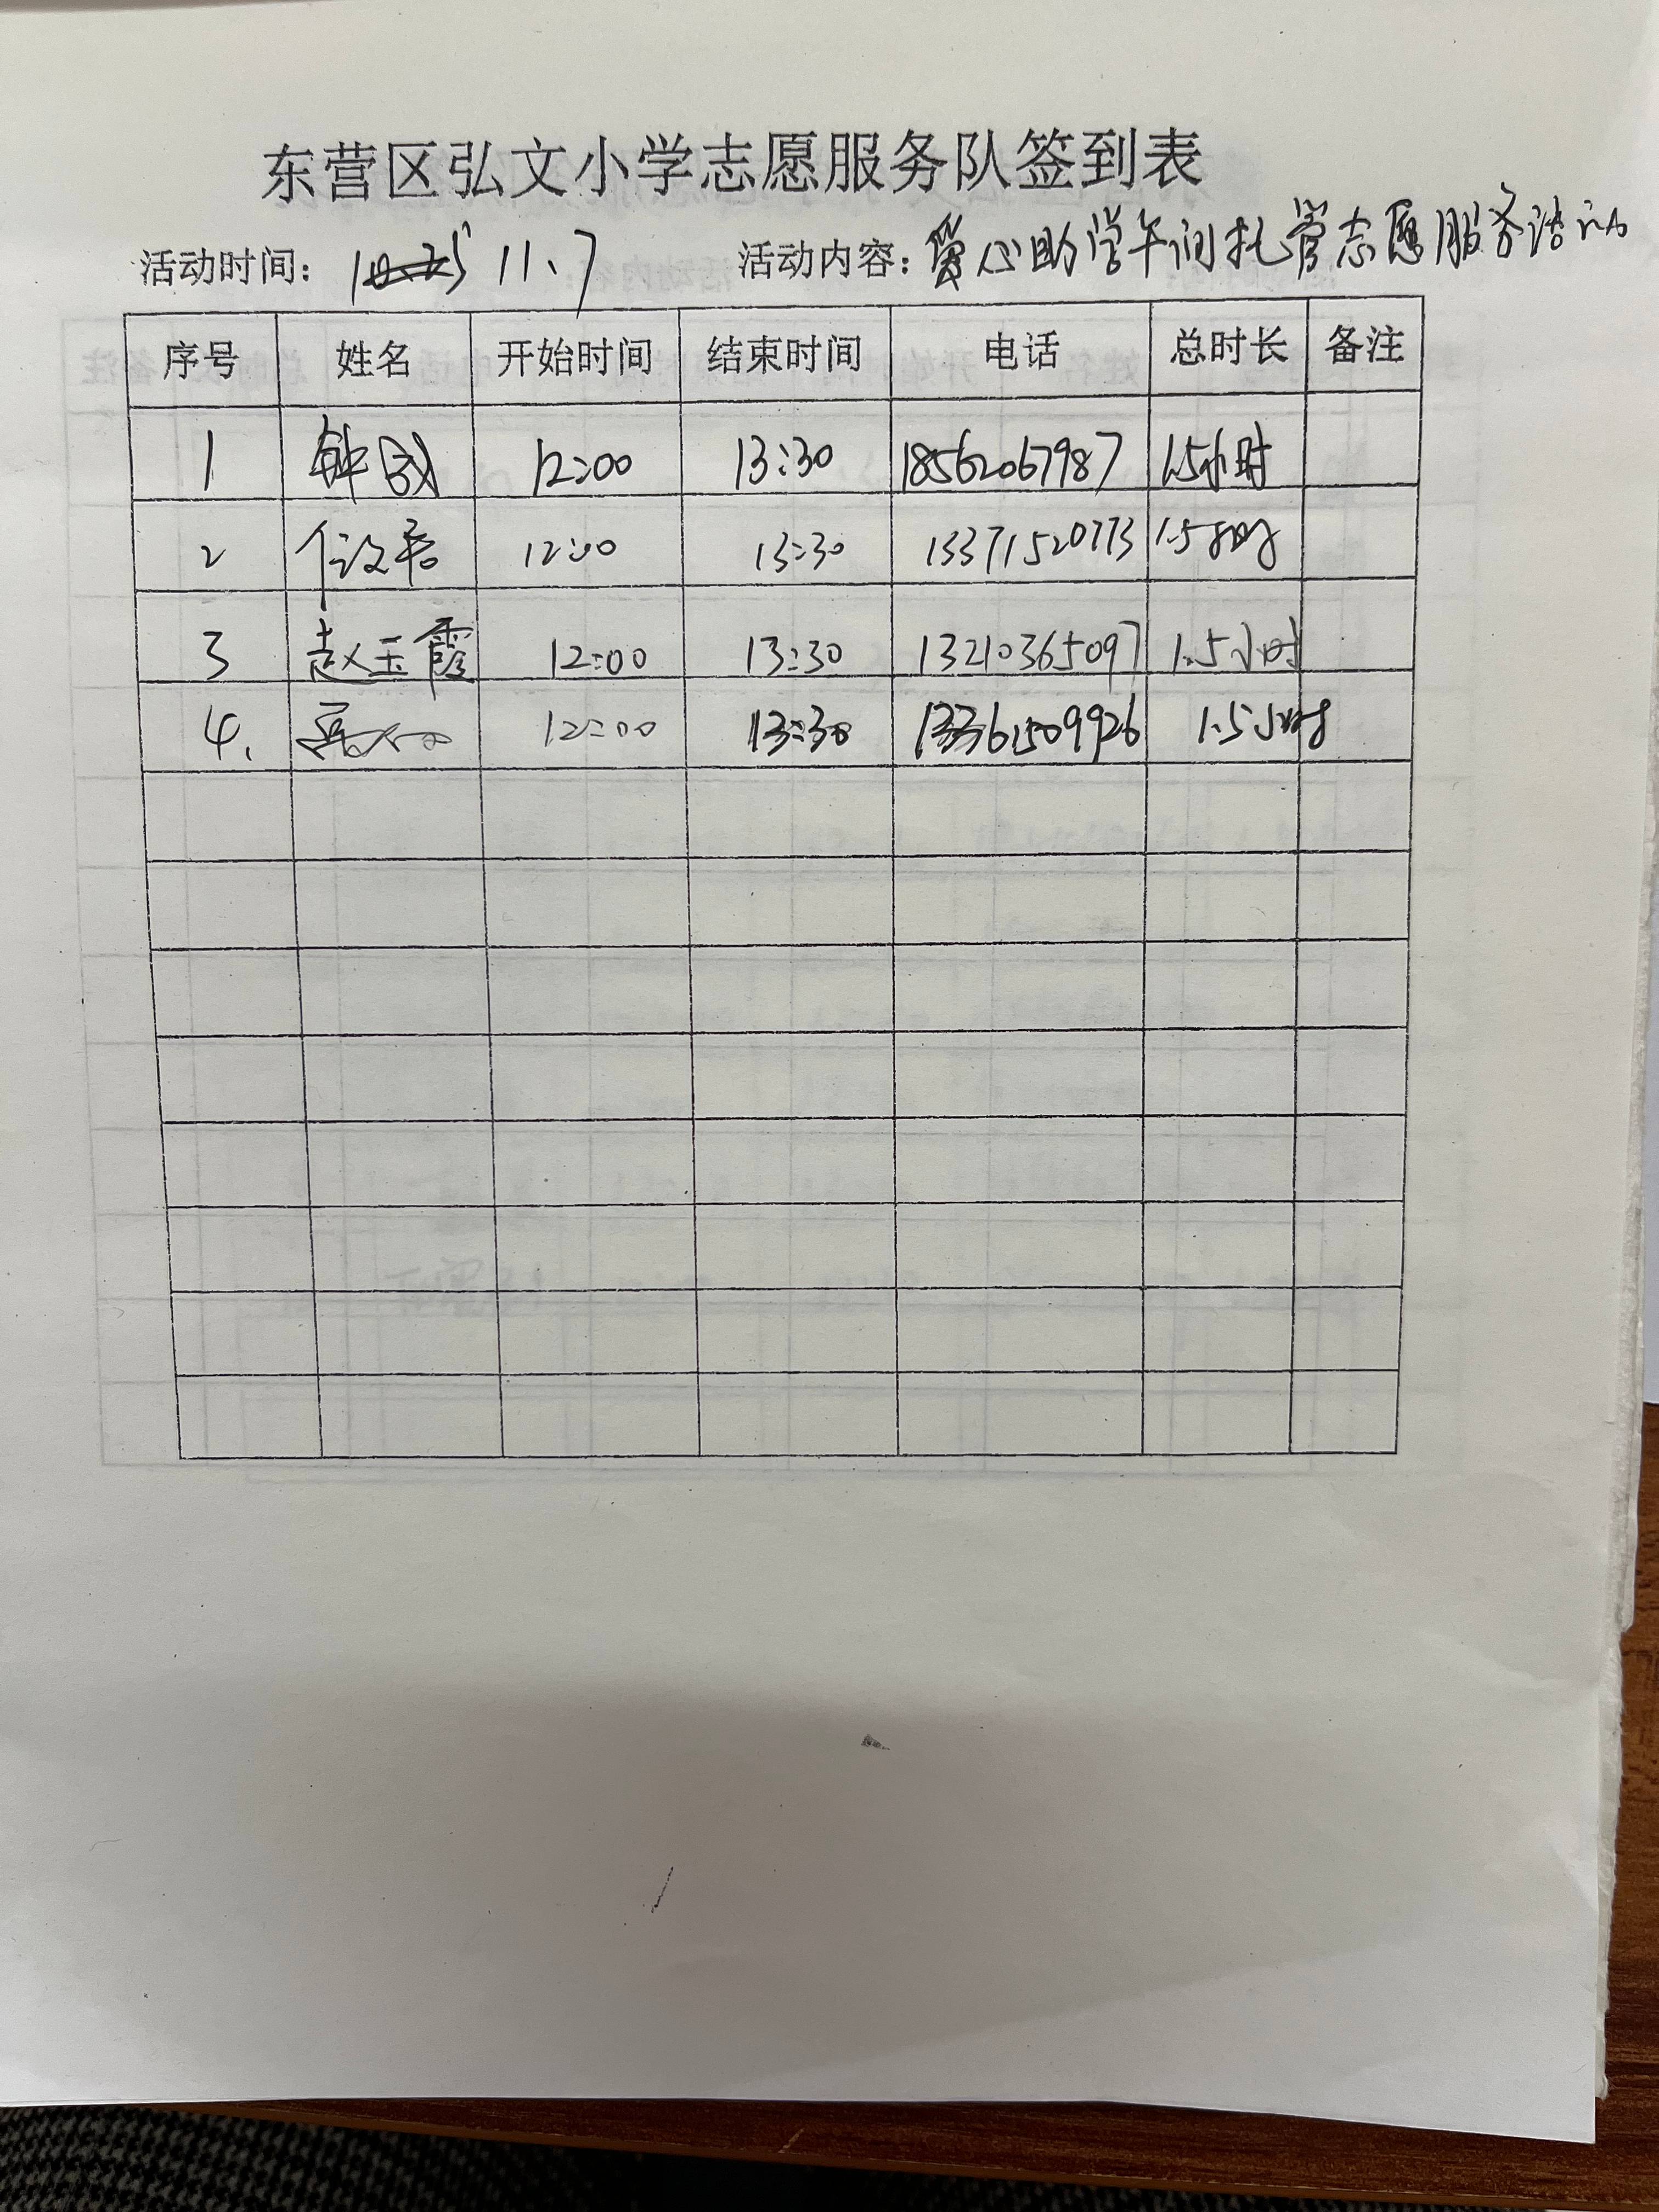 东营区弘文小学志愿服务队签到表
活动时间: 11.7 活动内容: 爱心助学午间托管志愿服务活动
序号 姓名 开始时间 结束时间 电话 总时长 备注
1 钟 12:00 13:30 18562067987 1.5小时
2 12:00 13:30 13371520773 1.5小时
3 赵玉霞 12:00 13:30 13210365097 1.5小时
4. 12:00 13:30 13361509926 1.5小时